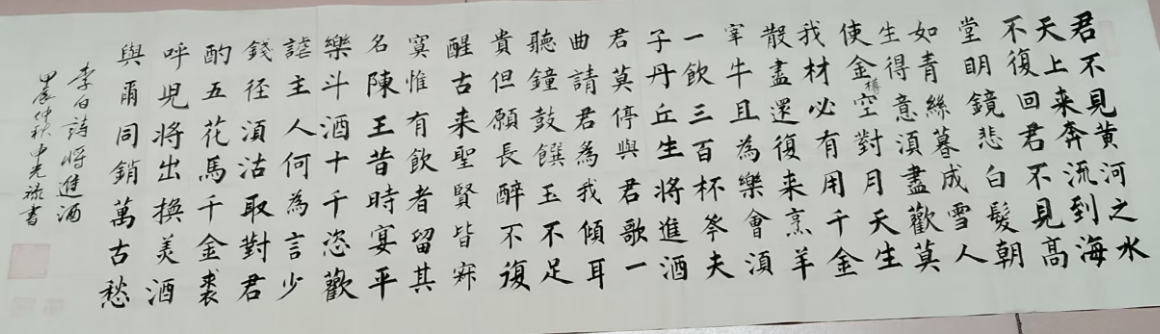 君不見黄河之水
天上来奔流到海
不復回君不見髙
堂明鏡悲白髮朝
如青絲暮成雪人
生得意湏盡歡莫
使金樽空對月天生
我材必有用千金
散盡還復来烹羊
宰牛且為樂會湏
一飲三百杯岑夫
子丹丘生將進酒
君莫停與君歌一
曲請君為我傾耳
聽鐘鼓饌玉不足
貴但願長醉不復
醒古来聖賢皆寂
寞惟有飲者留其
名陳王昔時宴平
樂斗酒十千恣歡
謔主人何為言少
錢徑湏沽取對君
酌五花馬千金裘
呼兒將出換美酒
與爾同銷萬古愁
李白詩將進酒
甲辰仲秋申光祿書